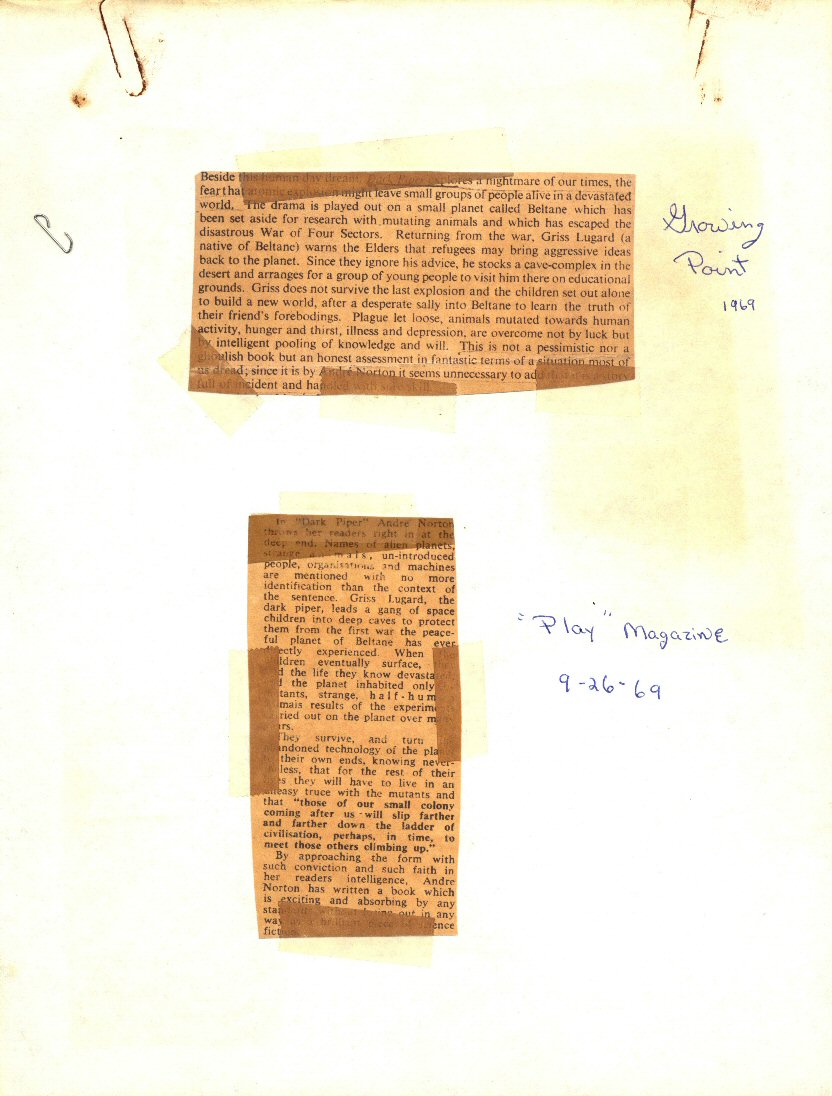 Beside this human day dream, Dark Piper explores a nightmare of our times, the
fear that atomic explosion might leave small groups of people alive in a devastated
world. The drama is played out on a small planet called Beltane which has
been set aside for research with mutating animals and which has escaped the
disastrous War of Four Sectors. Returning from the war, Griss Lugard (a
native of Beltane) warns the Elders that refugees may bring aggressive ideas
back to the planet. Since they ignore his advice, he stocks a cave-complex in the
desert and arranges for a group of young people to visit him there on educational
grounds. Griss does not survive the last explosion and the children set out alone
to build a new world, after a desperate sally into Beltane to learn the truth of
their friend's forebodings. Plague let loose, animals mutated towards human
activity, hunger and thirst, illness and depression, are overcome not by luck but
by intelligent pooling of knowledge and will. This is not a pessimistic nor a
ghoulish book but an honest assessment in fantastic terms of a situation most of
us dread; since it is by André Norton it seems unnecessary to add that it is a story
full of incident and handled with sure skill.
Growing
Point
1969
In "Dark Piper" Andre Norton
throws her readers right in at the
deep end. Names of alien planets,
strange animals, un-introduced
people, organisations and machines
are mentioned with no more
identification than the context of
the sentence. Griss Lugard, the
dark piper, leads a gang of space
children into deep caves to protect
them from the first war the peace-
ful planet of Beltane has ever
directly experienced. When
ldren eventually surface,
d the life they know devasta
d the planet inhabited only
tants, strange, half-hum
mais results of the experime
ried out on the planet over m
rs.
They survive, and turn
andoned technology of the pla
their own ends, knowing never-
less, that for the rest of their
es they will have to live in an
uneasy truce with the mutants and
that "those of our small colony
coming after us will slip farther
and farther down the ladder of
civilisation, perhaps, in time, to
meet those others climbing up."
By approaching the form with
such conviction and such faith in
her readers intelligence, Andre
Norton has written a book which
is exciting and absorbing by any
standards without losing out in any
way as a brilliant piece of science
fiction.
"Play" Magazine
9-26-69